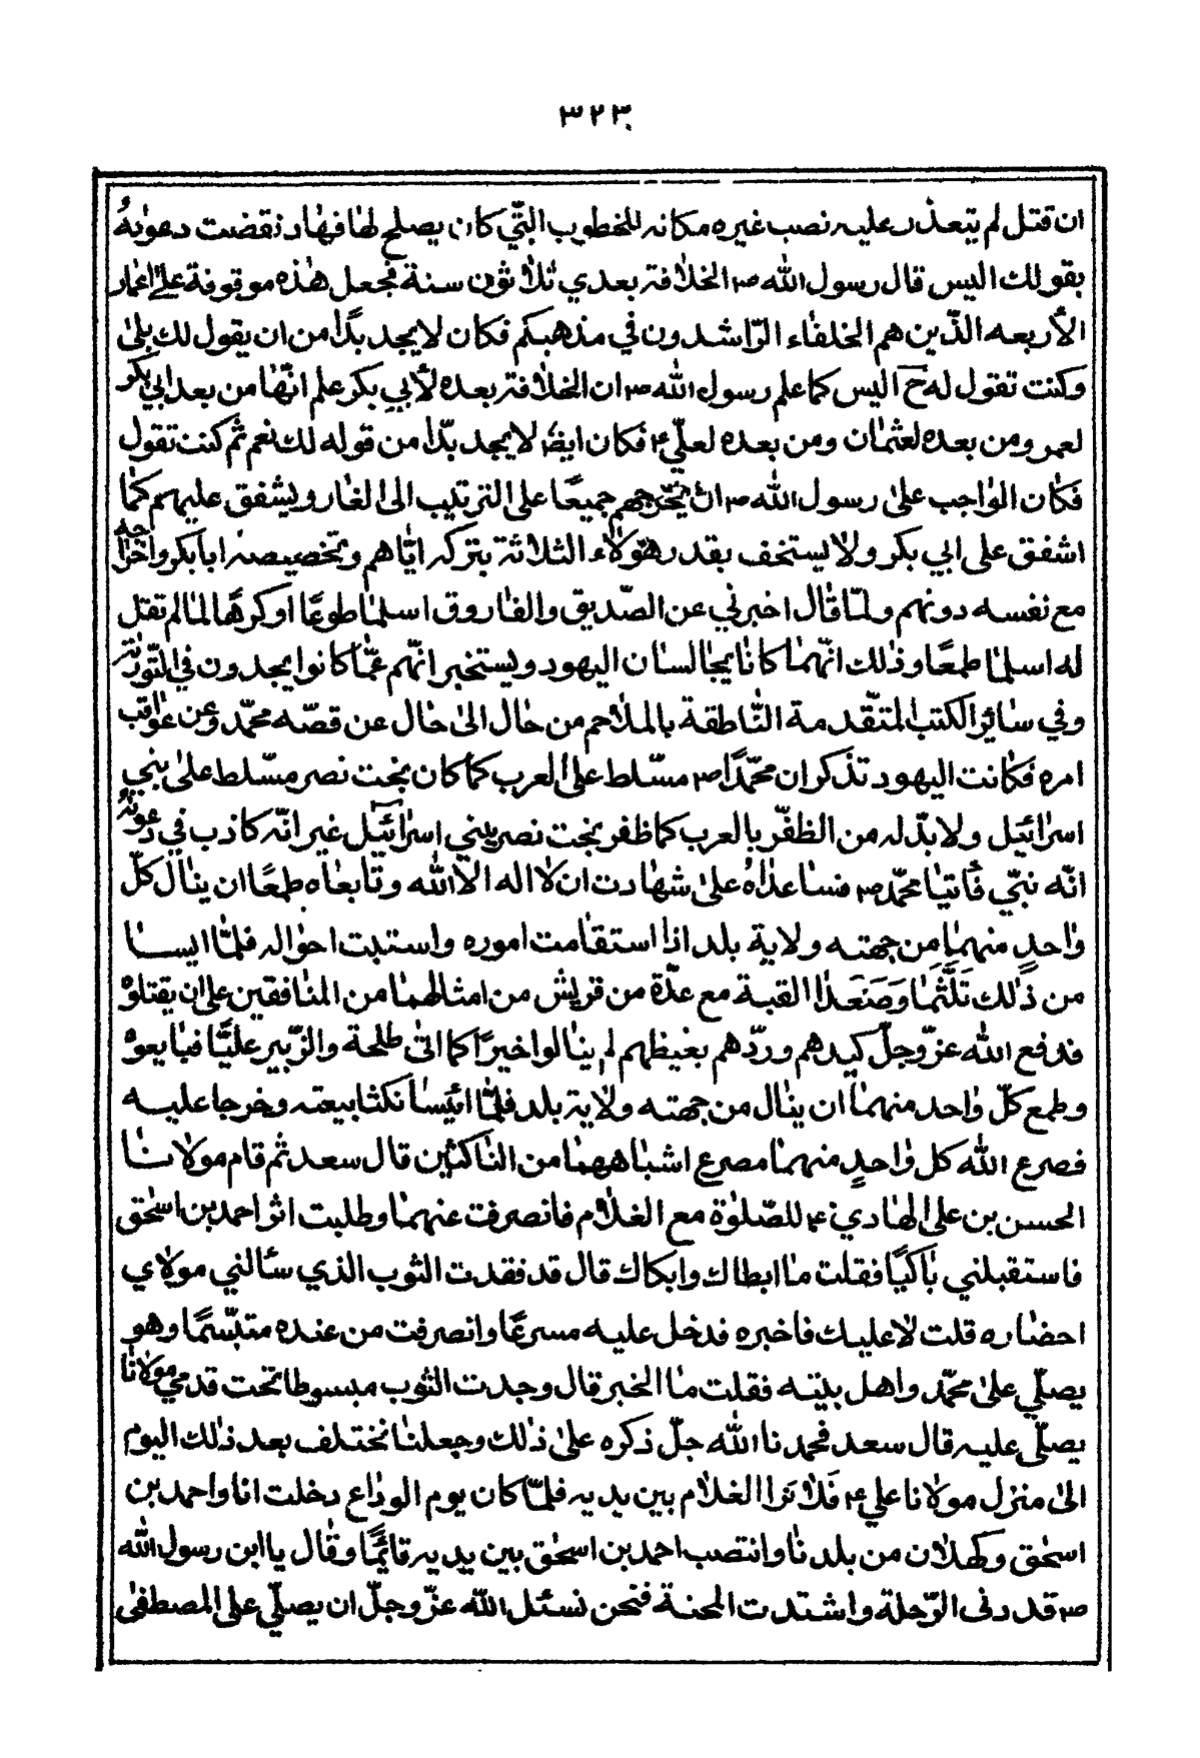 ٣٢٣
ان قتل لم يتعذر عليه نصب غيره مكانه للخطوب التّي كان يصلح لها فهلّا نقضت دعوٰيهُ
بقولك اليس قال رسول الله ص الخلافة بعدي ثلاثون سنة فجعل هٰذه موقوفة علىٰ اعمار
الأربعه الذّين هم الخلفاء الرّاشدون في مذهبكم فكان لا يجد بدًّا من ان يقول لك بلىٰ
وكنت تقول له ح اليس كما علم رسول الله ص ان الخلافة بعده لأبي بكر علم انّها من بعد ابي بكر
لعمر ومن بعده لعثمان ومن بعده لعلّي ع فكان ايضا لا يجد بدّا من قوله لك نعم ثم كنت تقول
فكان الواجب علىٰ رسول الله ص ان يخرجهم جميعًا على الترتيب الى الغار ويشفق عليهم كما
اشفق على ابي بكر ولا يستخف بقدر هؤلاء الثلاثة بتركه ايّاهم وتخصيصه ابا بكر واخراجه
مع نفسه دونهم ولمّا قال اخبرني عن الصّديق والفاروق اسلما طوعًا او كرهًا لما لم تقل
له اسلما طمعًا وذٰلك انّهما كانا يجالسان اليهود ويستخبرانهم عمّا كانوا يجدون في التّورٰية
وفي سائر الكتب المتقّدمة النّاطقة بالملاحم من حال الىٰ حال عن قصّه محمّد وعن عواقب
امره فكانت اليهود تذكر ان محمّدًا ص مسّلط على العرب كما كان بخت نصر مسّلط علىٰ بني
اسرائيل ولا بدّ له من الظفّر بالعرب كما ظفر بخت نصر ببني اسرآئيل غير انّه كاذب في دعوٰيه
انّه نبّي فأتيا محمّد ص فساعداهُ علىٰ شهادت ان لا اله الّا الله وتابعاه طمعًا ان ينال كلّ
واحدٍ منهما من جهته ولاية بلد اذا استقامت اموره واستبت احواله فلمّا ايسا
من ذٰلك تَلَثَّمَا وَصَعَدَا القبة مع عدّة من قريش من امثالهما من المنافقين علىٰ ان يقتلوه
فدفع الله عزّ وجلّ كيدهم وردّهم بغيظهم لم ينالوا خيرًا كما اتىٰ طلحة والزّبير عليًّا فبايعوه
وطمع كلّ واحد منهما ان ينال من جهته ولاية بلد فلمّا ائيسا نكثا بيعته وخرجا عليه
فصرع الله كل واحدٍ منهما مصرع اشباههما من النّاكثين قال سعد ثم قام مولانا
الحسن بن على الهادي ع للصّلوٰة مع الغلام فانصرفت عنهما وطلبت اثر احمد بن اسحٰق
فاستقبلني باكيًا فقلت ما ابطاك وابكاك قال قد فقدت الثوب الذي سئالني مولاي
احضاره قلت لا عليك فاخبره فدخل عليه مسرعًا وانصرفت من عنده متبّسمًا وهو
يصلّي علىٰ محمّد واهل بيته فقلت ما الخبر قال وجدت الثوب مبسوطا تحت قدمي مولانا
يصلّي عليه قال سعد فحمدنا الله جلّ ذكره علىٰ ذٰلك وجعلنا نختلف بعد ذٰلك اليوم
الىٰ منزل مولانا علي ع فَلا نرا الغلام بين يديه فلمّا كان يوم الوداع دخلت انا واحمد بن
اسحٰق وكهلان من بلدنا وانتصب احمد بن اسحٰق بين يديه قائمًا وقال يا ابن رسول الله
ص قد دنى الرّحلة واشتدت المحنة فنحن نسئل الله عزّ وجلّ ان يصلّي على المصطفىٰ